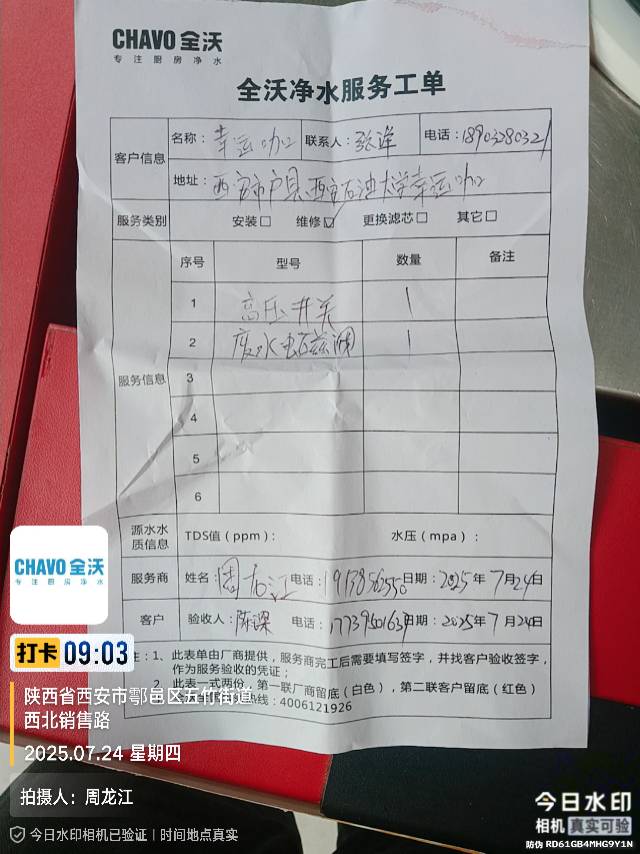 CHAVO 全沃
专注厨房净水
全沃净水服务工单
客户信息 名称：幸运咖 联系人：张洋 电话：18903280321
地址：西安市户县西安石油大学幸运咖
服务类别 安装□ 维修☑ 更换滤芯□ 其它□
服务信息
序号 型号 数量 备注
1 高压开关 1
2 废水电磁阀 1
3
4
5
6
源水水质信息 TDS值（ppm）： 水压（mpa）：
服务商 姓名 周龙江 电话： 日期：2025年7月24日
客户 验收人：陈琛 电话： 日期：2025年7月24日
注：1、此表单由厂商提供，服务商完工后需要填写签字，并找客户验收签字，
作为服务验收的凭证；
2、此表一式两份，第一联厂商留底（白色），第二联客户留底（红色）
热线：4006121926
CHAVO 全沃
专注厨房净水
打卡 09:03
陕西省西安市鄠邑区五竹街道
西北销售路
2025.07.24 星期四
拍摄人：周龙江
今日水印相机已验证｜时间地点真实
今日水印
相机 真实可验
防伪 RD61GB4MHG9Y1N